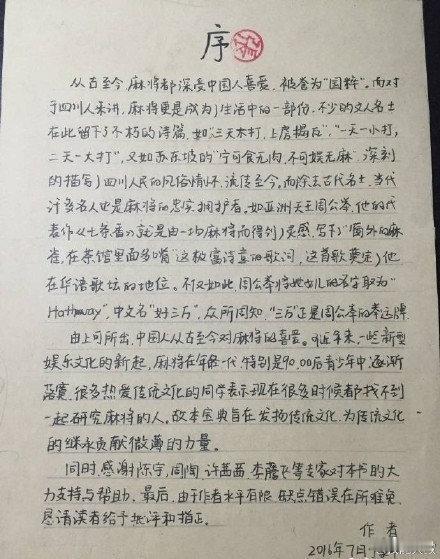 序
从古至今,麻将都深受中国人喜爱,被誉为"国粹"。而对
于四川人来讲,麻将更是成为了生活中的一部份,不少的文人名士
在此留下了不朽的诗篇,如"三天不打,上房揭瓦","一天一小打,
二天一大打",又如苏东坡的"宁可食无肉,不可娱无麻",深刻
的描写了四川人民的风俗情怀,流传至今,而除去古代名士,当代
许多名人也是麻将的忠实拥护者。如亚洲天王周公举,他的代
表作《七条香》就是由一场麻将而得到了灵感,写下了"窗外的麻
雀,在茶馆里面多嘴"这极富诗意的歌词,这首歌奠定了他
在华语歌坛的地位。不仅如此,周公举将她女儿的名字取为"
Hathaway",中文名"好三万",众所周知,"三万"正是周公举的幸运牌
由上可所出,中国人从古至今对麻将的喜爱。近年来,一些新型
娱乐文化的新起,麻将在年轻一代,特别是90,00后青少年中,逐渐
落寞,很多热爱传统文化的同学表示现在很多时候都找不到
一起研究麻将的人。故本宝典旨在发扬传统文化,为传统文化
的继承贡献微薄的力量。
同时,感谢陈宇,周陶,许茜茜,李蘑飞等专家对本书的大
力支持与帮助。最后,由于作者水平有限,缺点错误在所难免,
恳请读者给予批评和指正。
作者
2016年7月